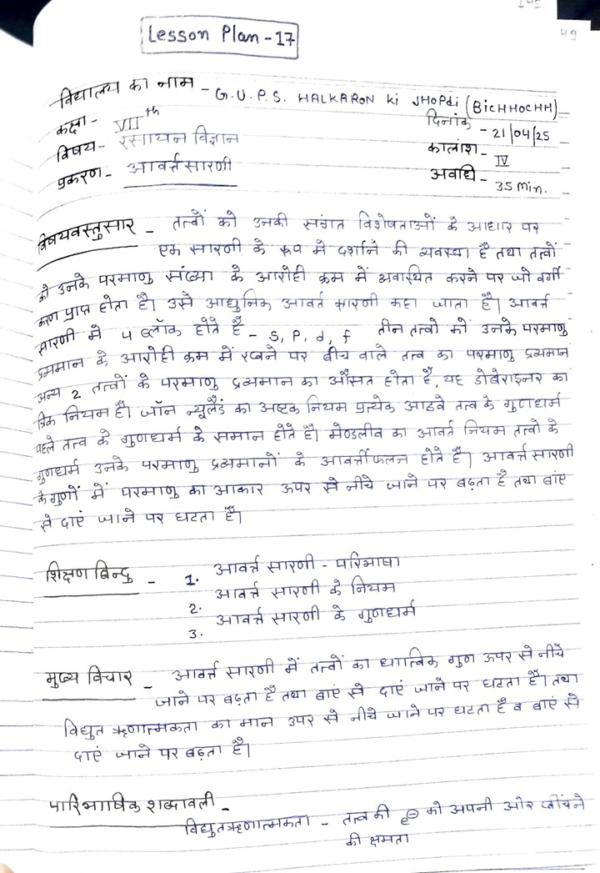 49
Lesson Plan - 17
विद्यालय का नाम - G.U.P.S. HALKARON Ki JHOPdi (BicHHocHH)
कक्षा - VIIth
दिनांक - 21/04/25
विषय - रसायन विज्ञान
कालांश - IV
प्रकरण - आवर्त्त सारणी
अवधि - 35 Min.
विषयवस्तुसार - तत्वों को उनकी संगत विशेषताओं के आधार पर
एक सारणी के रूप में दर्शाने की व्यवस्था है तथा तत्वों
को उनके परमाणु संख्या के आरोही क्रम में अवस्थित करने पर जो वर्गी
करण प्राप्त होता है। उसे आधुनिक आवर्त सारणी कहा जाता है। आवर्त
सारणी में 4 ब्लॉक होते है - s, p, d, f तीन तत्वों को उनके परमाणु
द्रव्यमान के आरोही क्रम में रखने पर बीच वाले तत्व का परमाणु द्रव्यमान
अन्य 2 तत्वों के परमाणु द्रव्यमान का औसत होता है, यह डोबेराइनर का
त्रिक नियम है। जॉन न्यूलैंड का अष्टक नियम प्रत्येक आठवे तत्व के गुणधर्म
पहले तत्व के गुणधर्म के समान होते है। मेण्डलीव का आवर्त नियम तत्वों के
गुणधर्म उनके परमाणु द्रव्यमानों के आवर्तीफलन होते है। आवर्त सारणी
के गुणों में परमाणु का आकार ऊपर से नीचे जाने पर बढ़ता है तथा बांए
से दाएं जाने पर घटता है।
शिक्षण बिन्दु - 1. आवर्त्त सारणी - परिभाषा
2. आवर्त्त सारणी के नियम
3. आवर्त्त सारणी के गुणधर्म
मुख्य विचार - आवर्त्त सारणी में तत्वों का धात्विक गुण ऊपर से नीचे
जाने पर बढ़ता है तथा बाएं से दाएं जाने पर घटता है। तथा
विद्युत ऋणात्मकता का मान उपर से नीचे जाने पर घटता है व बाएं से
दाएं जाने पर बढ़ता है।
पारिभाषिक शब्दावली -
विद्युतऋणात्मकता - तत्व की e⊖ को अपनी ओर खींचने
की क्षमता